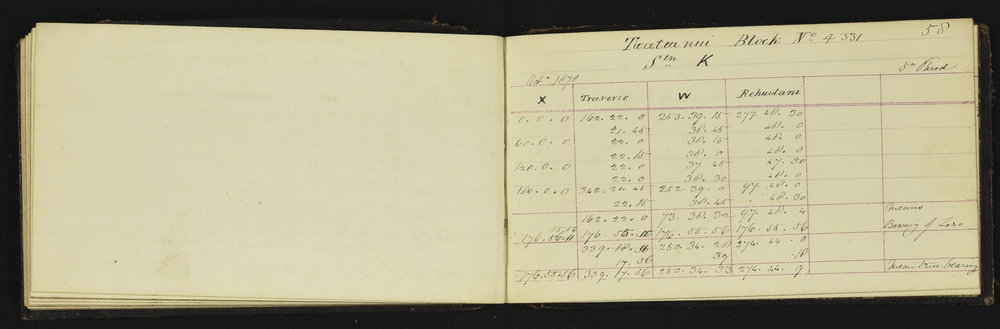 58
Block No 4331
Stn K
Octr 1878
5" Theod
X Traverse W Rehuotane
0.0.0 162.22.0 253.39.15 277.48.30
21.45 38.45 48.0
60.0.0 22.0 38.15 48.0
22.15 38.0 48.0
120.0.0 22.0 37.45 47.30
22.0 38.30 48.0
180.0.0 342.21.45 252.39.0 97.48.0
22.15 38.45 48.30
162.22.0 73.38.32 97.48.4 Means
176.55.56 176.55.56 176.55.56 Bearing of Zero
339.18. 250.34.28 274.44.0
17.56 39 18
176.55.56 339.17.56 250.34.33 274.44.9 Mean true bearing